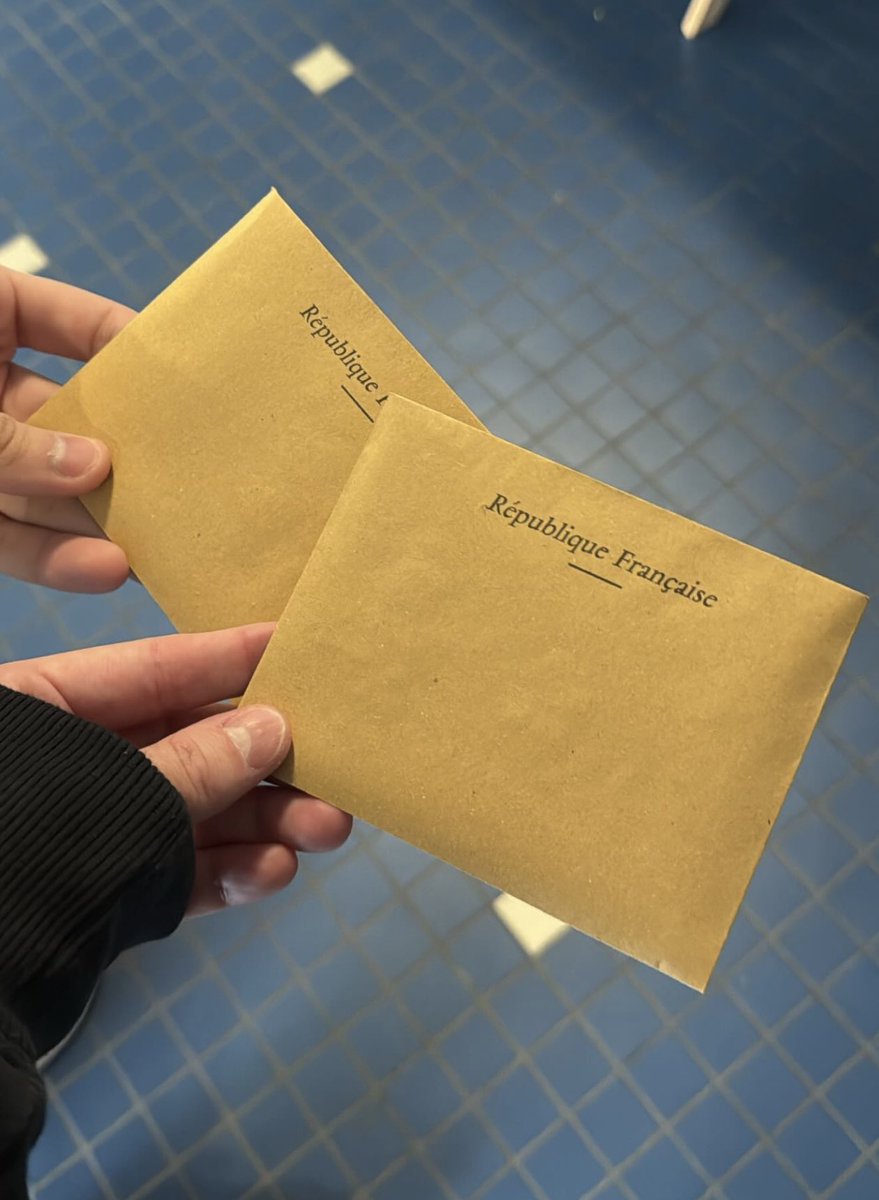 République
République Française